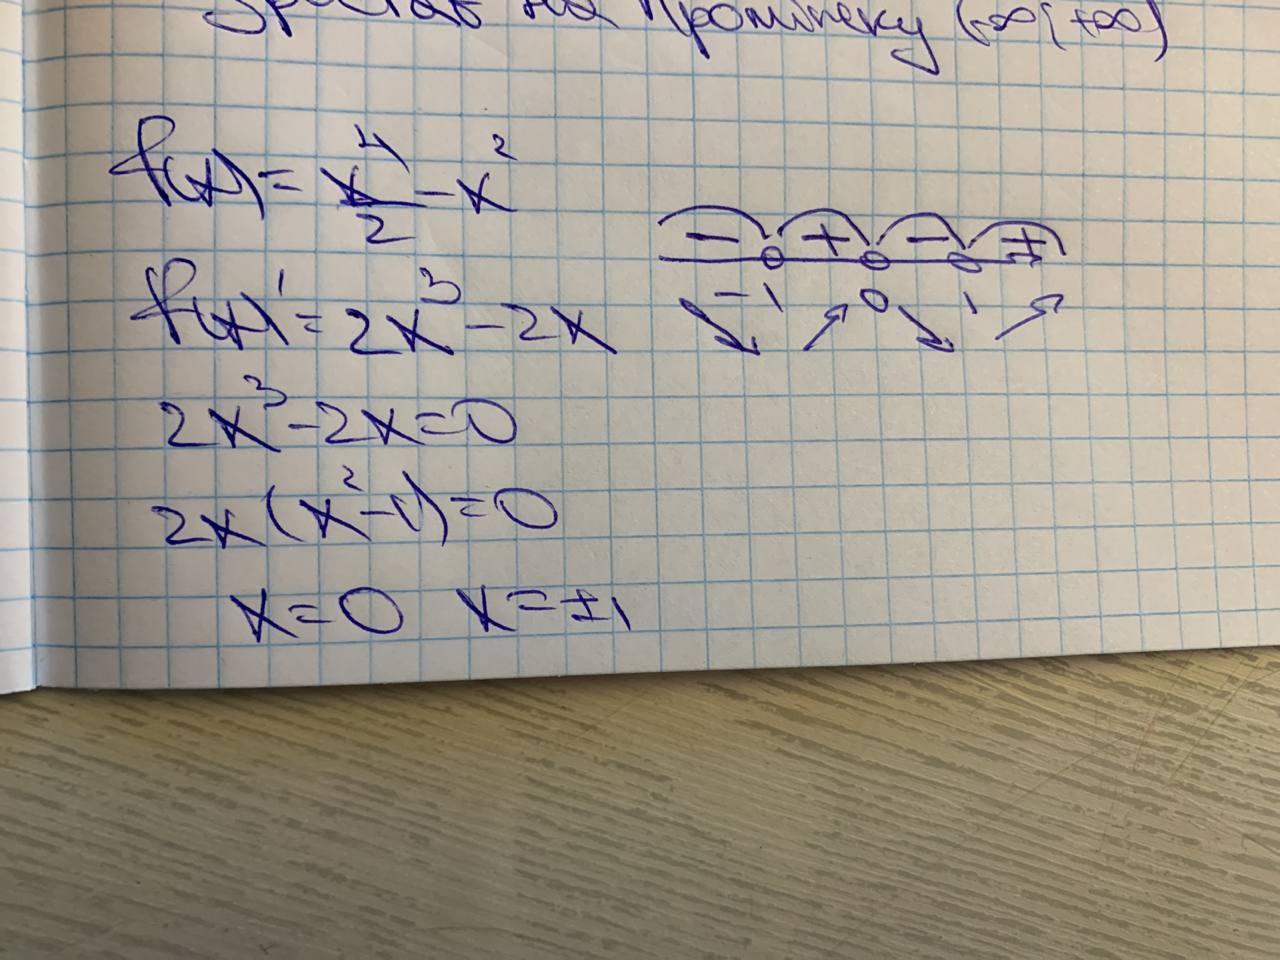 на проміжку (-∞; +∞)
f(x) = x⁴/2 - x²
f(x)' = 2x³ - 2x
2x³ - 2x = 0
2x(x² - 1) = 0
x = 0 x = ±1
- + - +
-1 0 1
↘ ↗ ↘ ↗